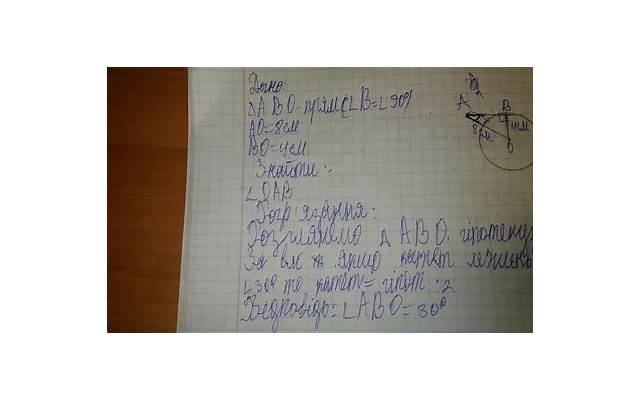 Дано:
△ABO-прям(∠B=∠90°)
AO=8см
BO=4см
Знайти:
∠OAB
Розв'язання:
Розглянемо △ ABO. гіпотену
За вл ж. якщо катет лежить
∠30° то катет= гіпот :2
Відповідь: ∠ABO=30°
A
B
8см
4см
O